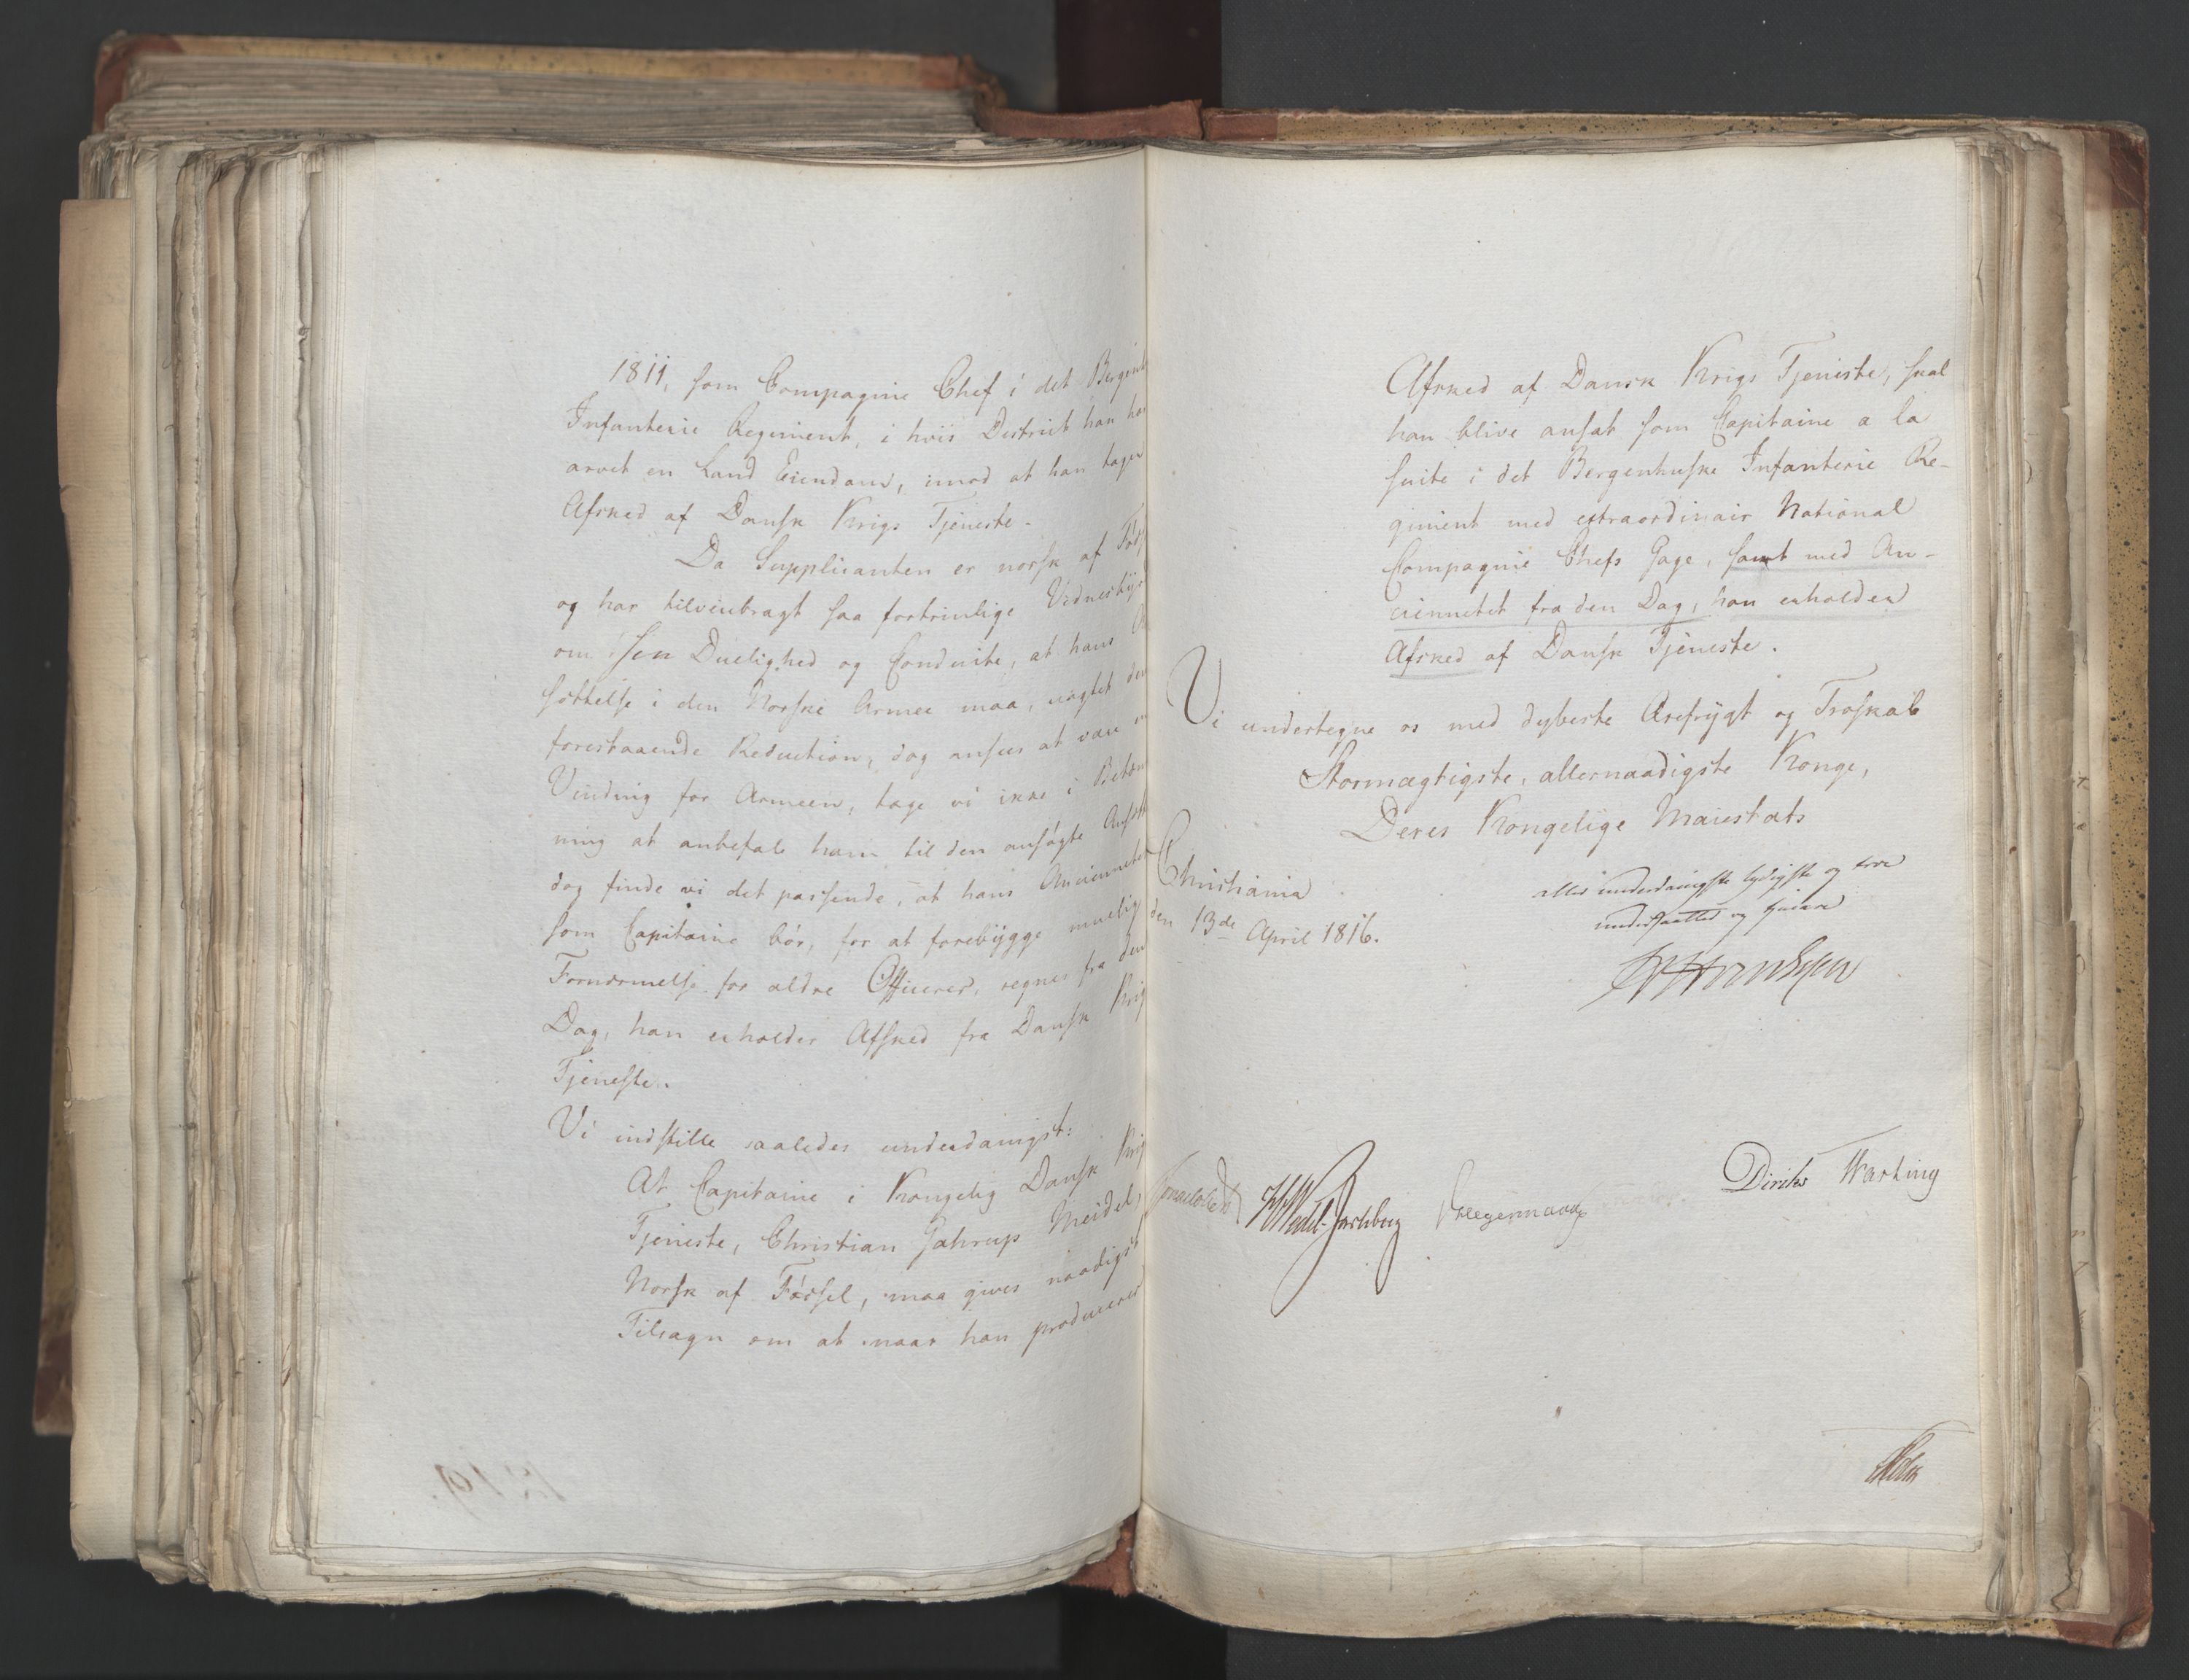 1811, som Compagnie Chef i det Bergenh
Infanterie Regiment, i hvis District han ha
arvet en Land Eiendom, imod at han tager
Afsked af Dansk Krigs Tjeneste.
Da Supplicanten er norsk af Føds
og har tilveiebragt saa fortrinlige Vidnesbyr
om sin Duelighed og Conduite, at hans A
sættelse i den Norske Armee maa, uagtet den
forestaaende Reduction, dog ansees at være
Vinding for Armeen, tage vi ikke i Betæn
ning at anbefale ham til den ansøgte Ansæt
dog finde vi det passende, at hans Anciennetet
som Capitaine bør, for at forebygge muelig
Fornærmelse for ældre Officerer, regnes fra den
Dag, han erholder Afsked fra Dansk Krig
Tjeneste.
Vi indstille saaledes underdanigst:
At Capitaine i Kongelig Dansk Krig
Tjeneste, Christian Gahrup Meidel,
Norsk af Fødsel, maa gives naadigst
Tilsagn om at naar han producerer
Afsked af Dansk Krigs Tjeneste, skal
han blive ansat som Capitaine a la
suite i det Bergenhuske Infanterie Re-
giment med extraordinair National
Compagnie Chefs Gage, samt med An-
ciennetet fra den Dag, han erholder
Afsked af Dansk Tjeneste.
Vi undertegne os med dybeste Ærefrygt og Troskab
Stormægtigste, allernaadigste Konge,
Deres Kongelige Maiestæts
Christiania
den 13de April 1816.
allerunderdanigste lydigste og troe
undersaatter og tienere
HWedel-Jarlsberg
Diriks Harhing
Holst